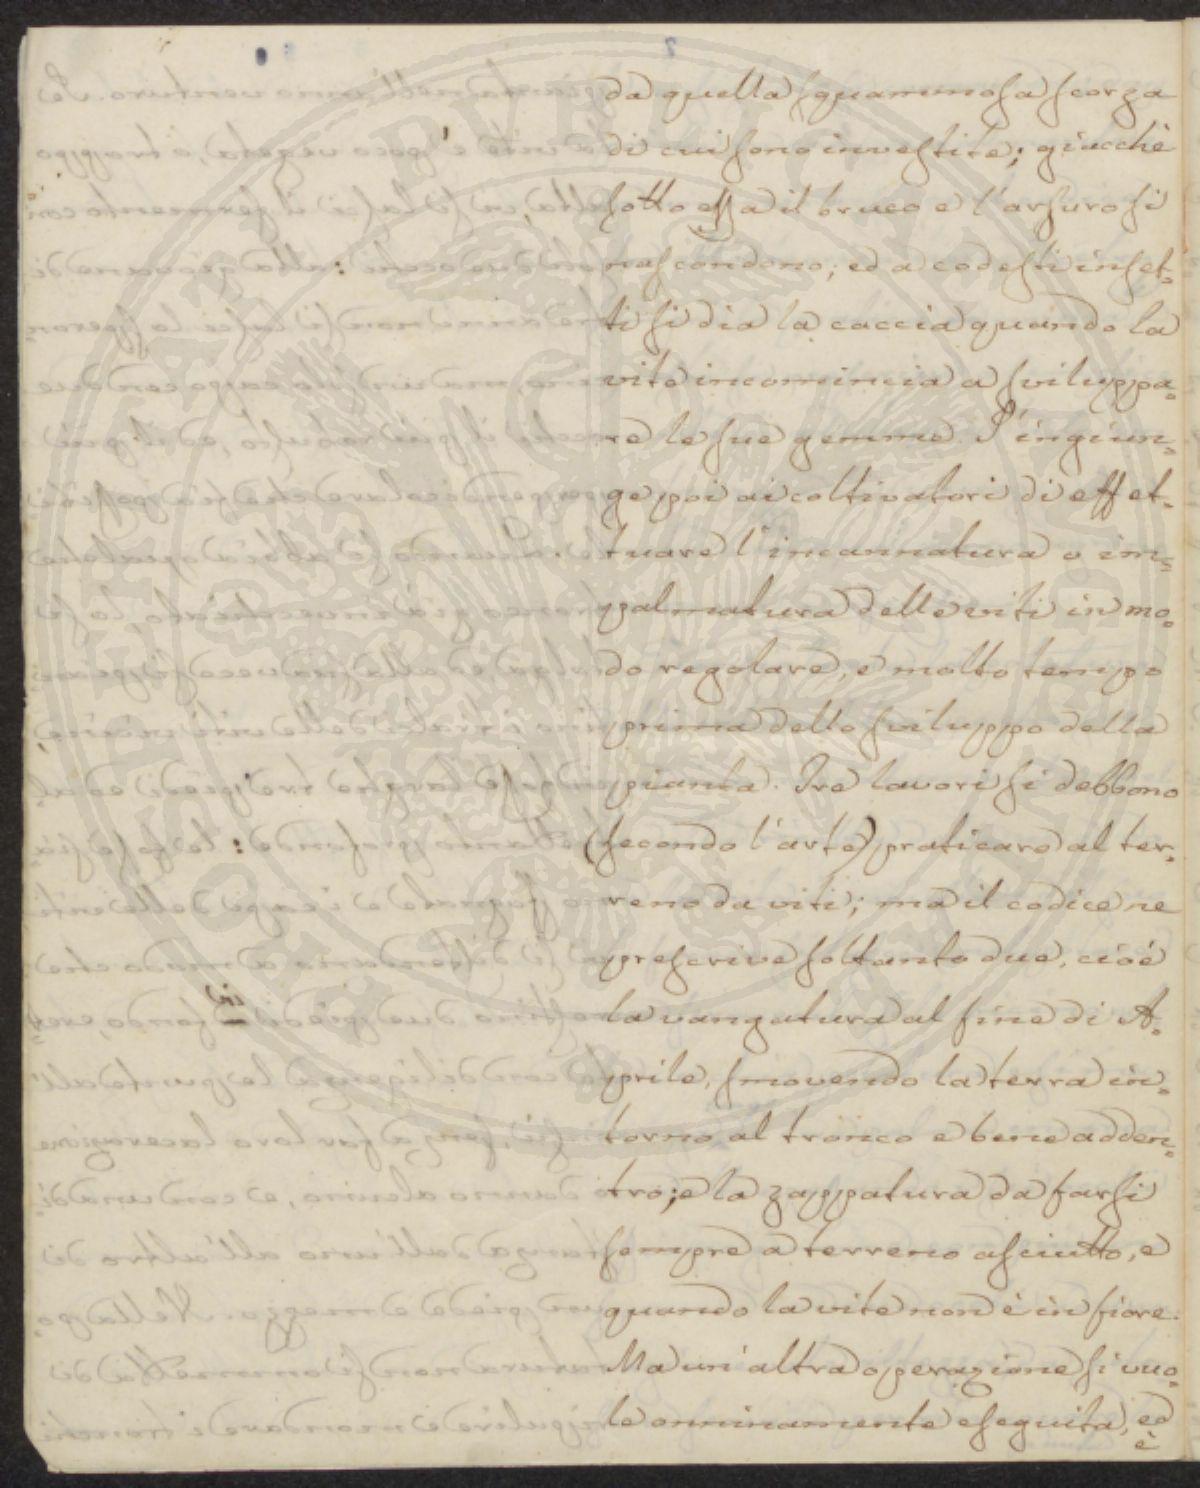 da quella squammosa scorza
di cui sono investite; giacchè
sotto essa il bruco e l'arsuro si
nascondono; ed a codesti inset=
ti si dia la caccia quando la
vite incomincia a sviluppa=
re le sue gemme. S'ingiun=
ge poi ai coltivatori di effet=
tuare l'incannatura o im=
palmatura delle viti in mo=
do regolare, e molto tempo
prima dello sviluppo della
pianta. Tre lavori si debbono
(secondo l'arte) praticare al ter=
reno da viti; ma il codice ne
prescrive soltanto due, cioè
la vangatura al fine di A=
prile, smovendo la terra in=
torno al tronco e bene adden=
tro; e la zappatura da farsi
sempre a terreno asciutto, e
quando la vite non è in fiore.
Ma un'altra operazione si vuo=
le onninamente eseguita, ed
è